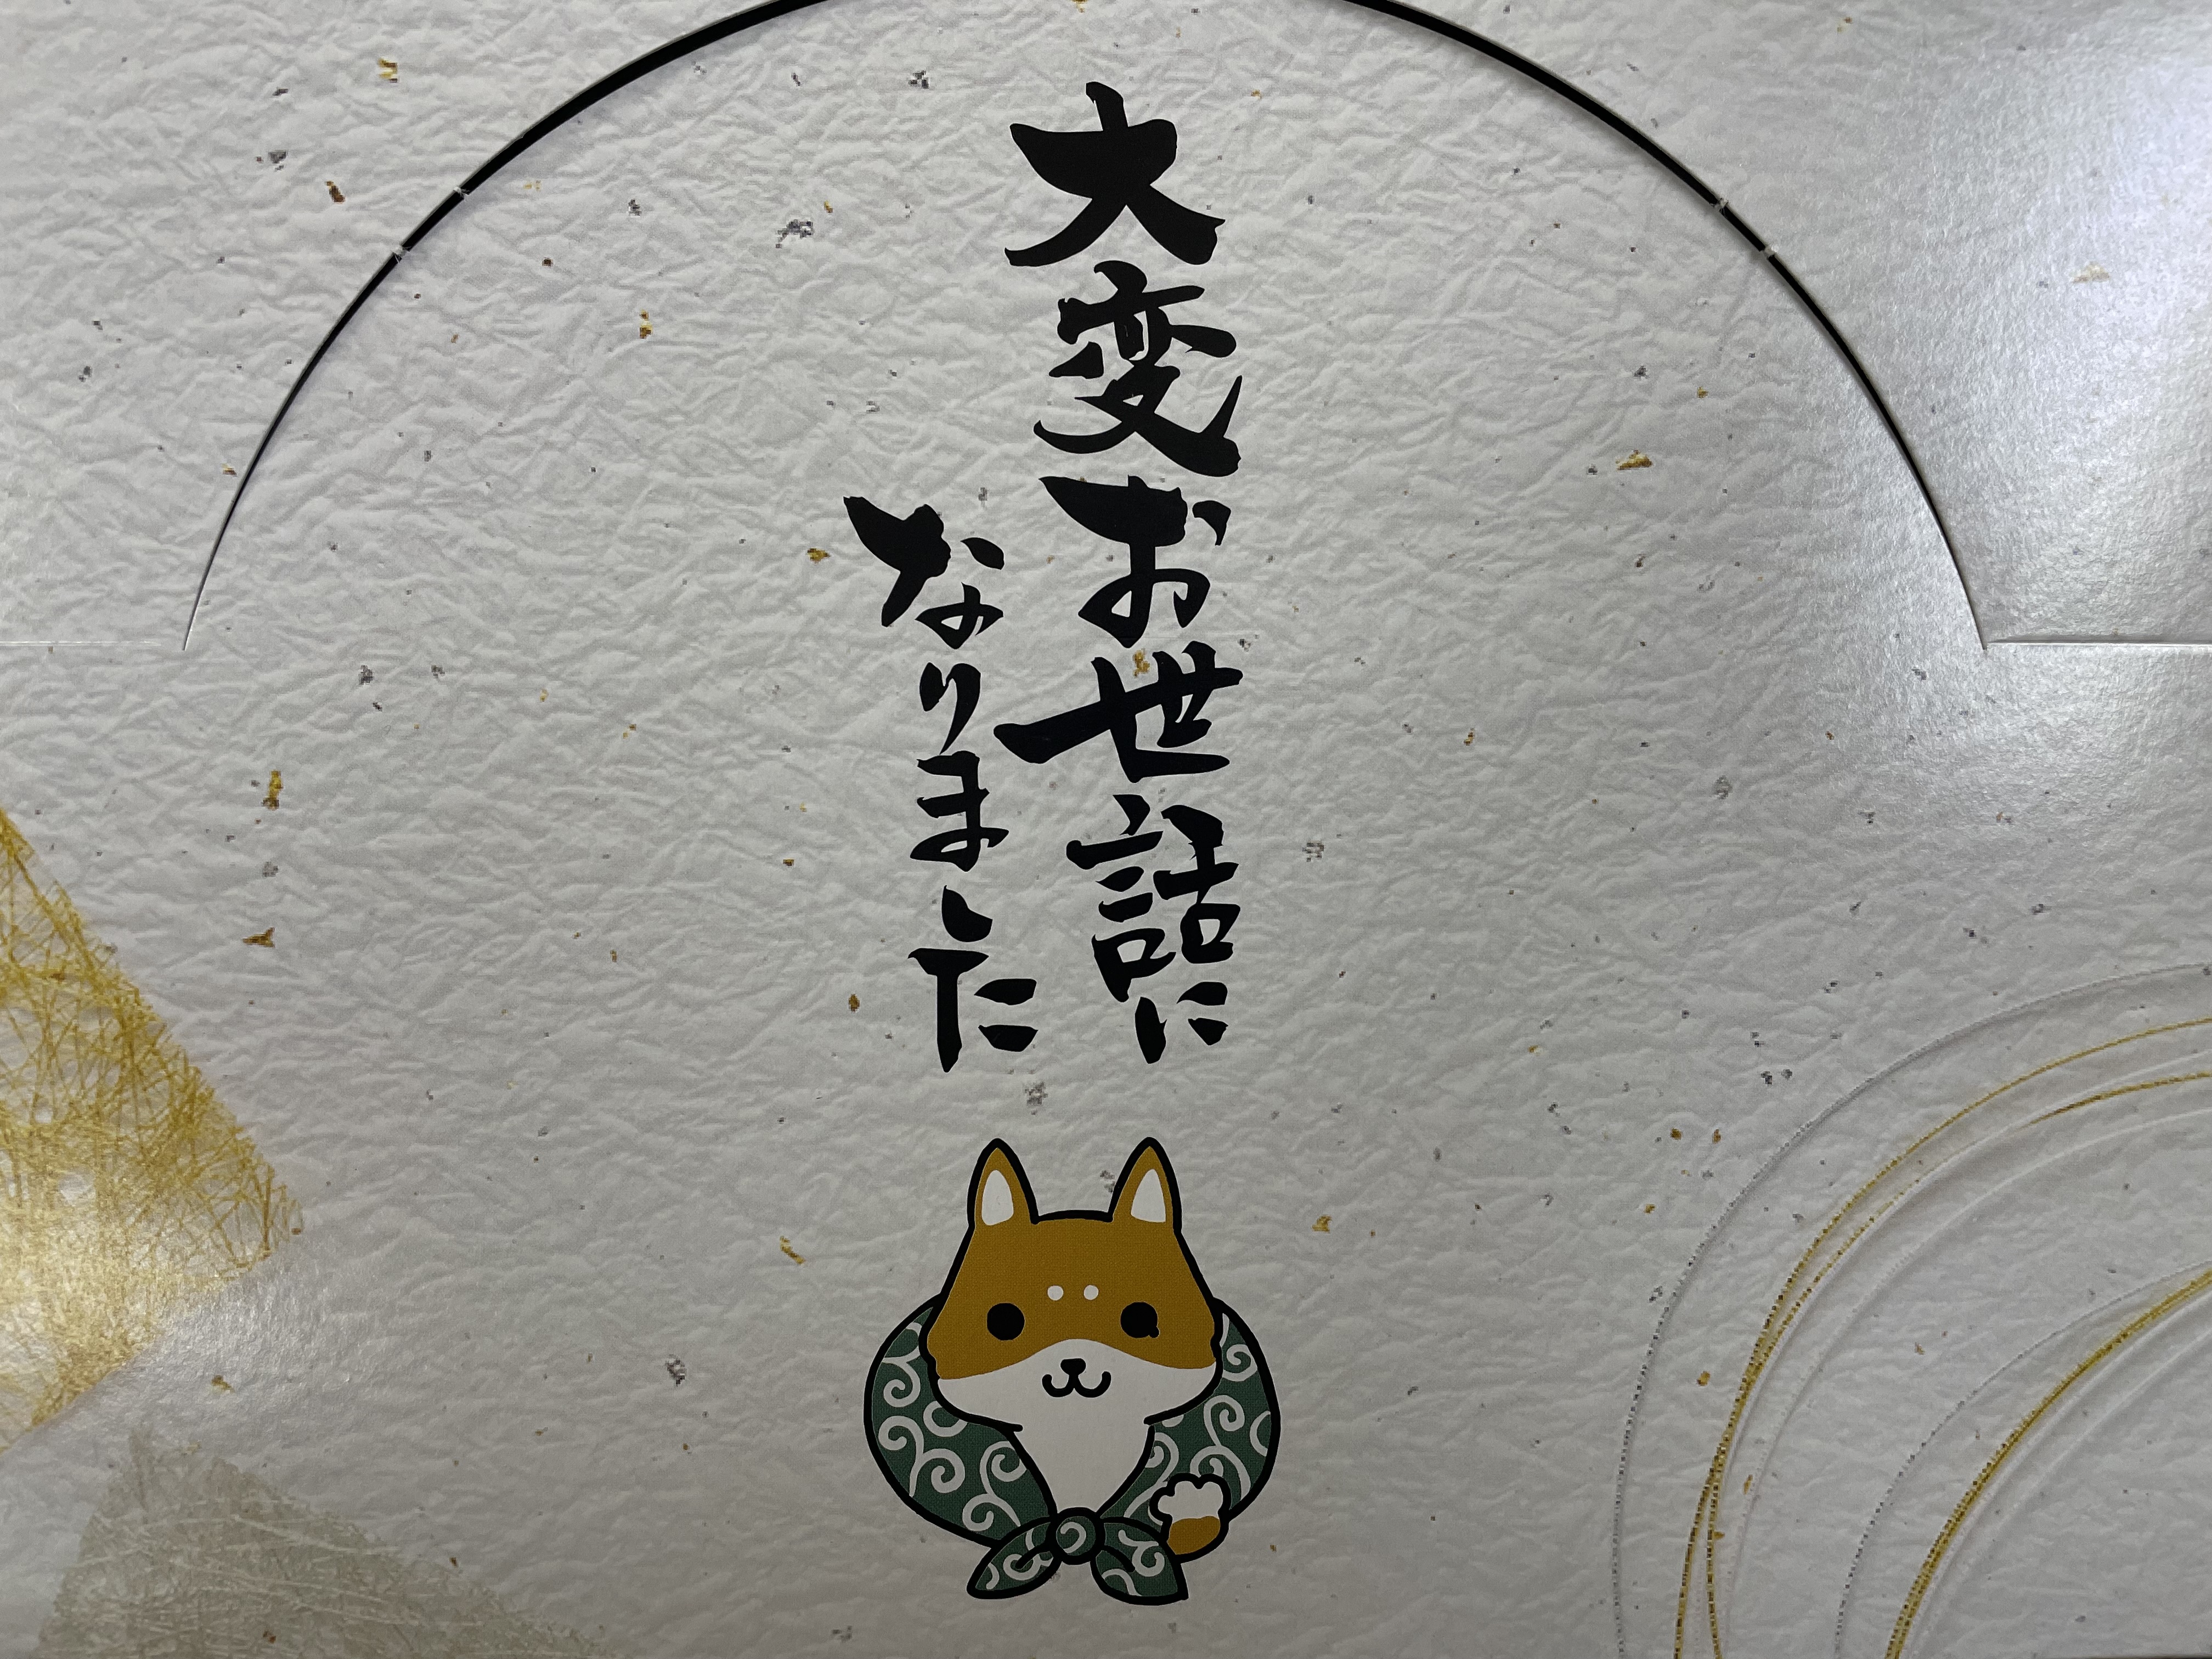 大変お世話に
なりました